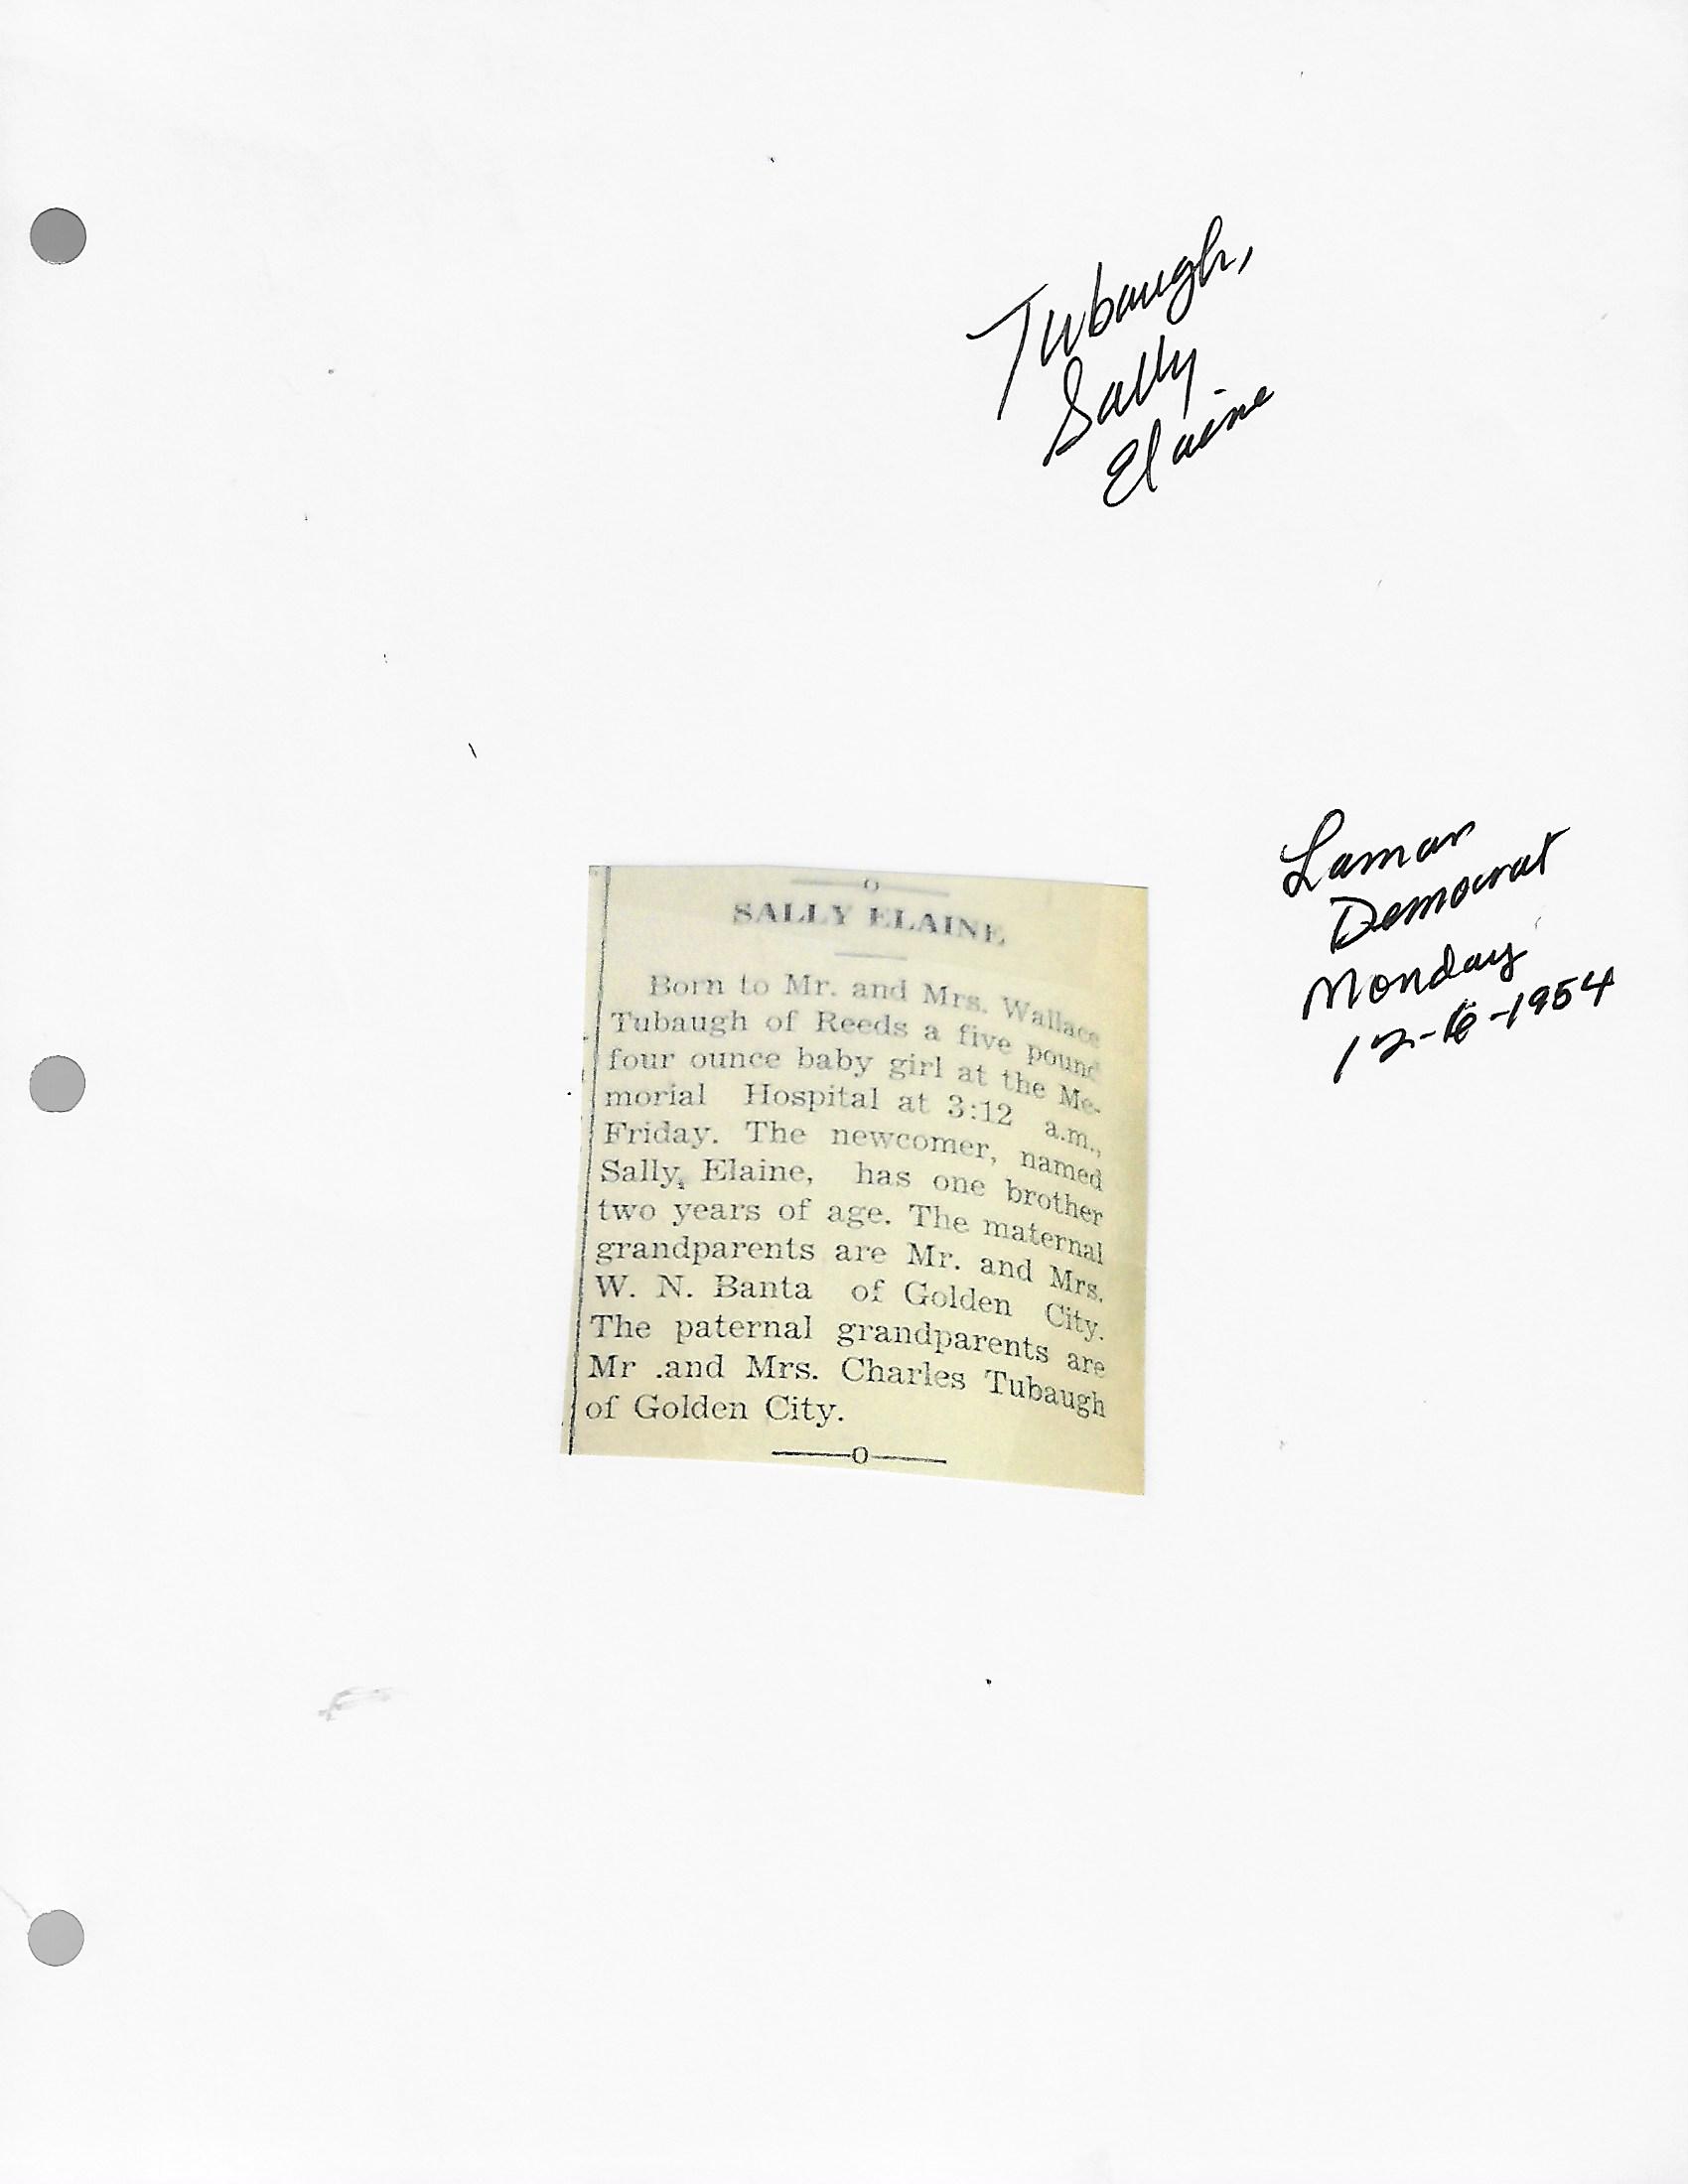 Tubaugh,
Sally
Elaine
Lamar
Democrat
Monday
12-6-1954
SALLY ELAINE
Born to Mr. and Mrs. Wallace
Tubaugh of Reeds a five pound
four ounce baby girl at the Me-
morial Hospital at 3:12 a.m.,
Friday. The newcomer, named
Sally, Elaine, has one brother
two years of age. The maternal
grandparents are Mr. and Mrs.
W. N. Banta of Golden City.
The paternal grandparents are
Mr .and Mrs. Charles Tubaugh
of Golden City.